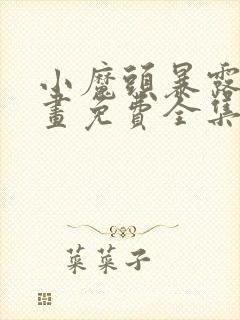 小魔頭暴露
畫免費全集
菜菜子